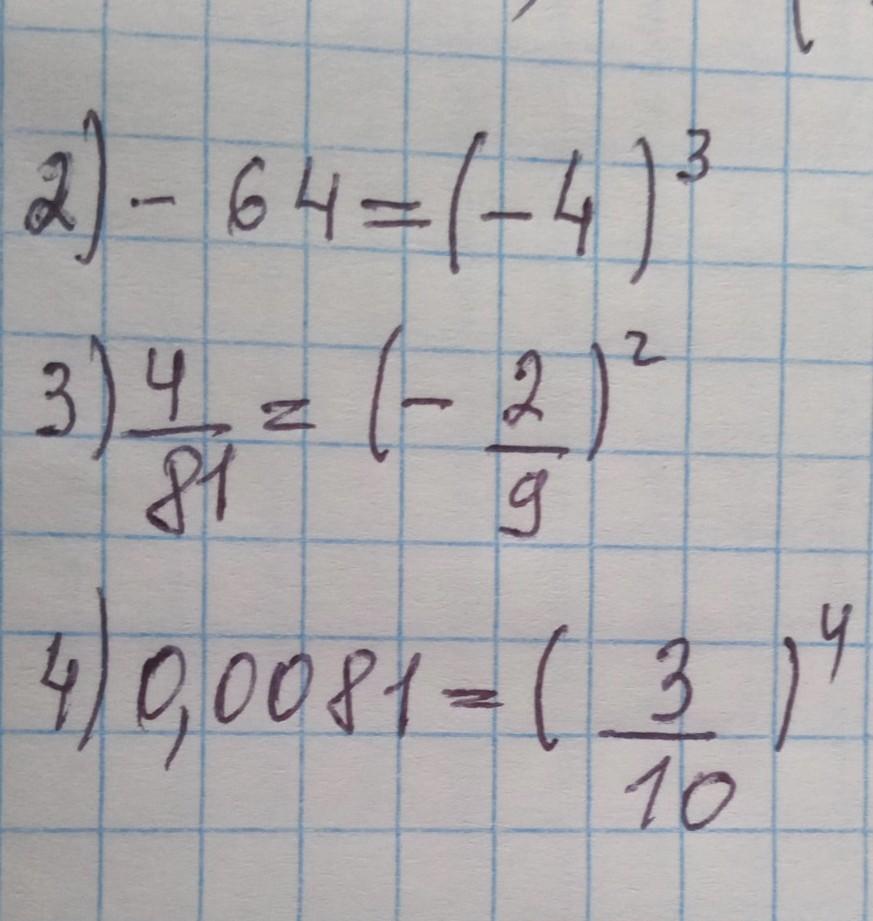 2) - 64 = (-4)³
3) 4/81 = (- 2/9)²
4) 0,0081 = (3/10)⁴